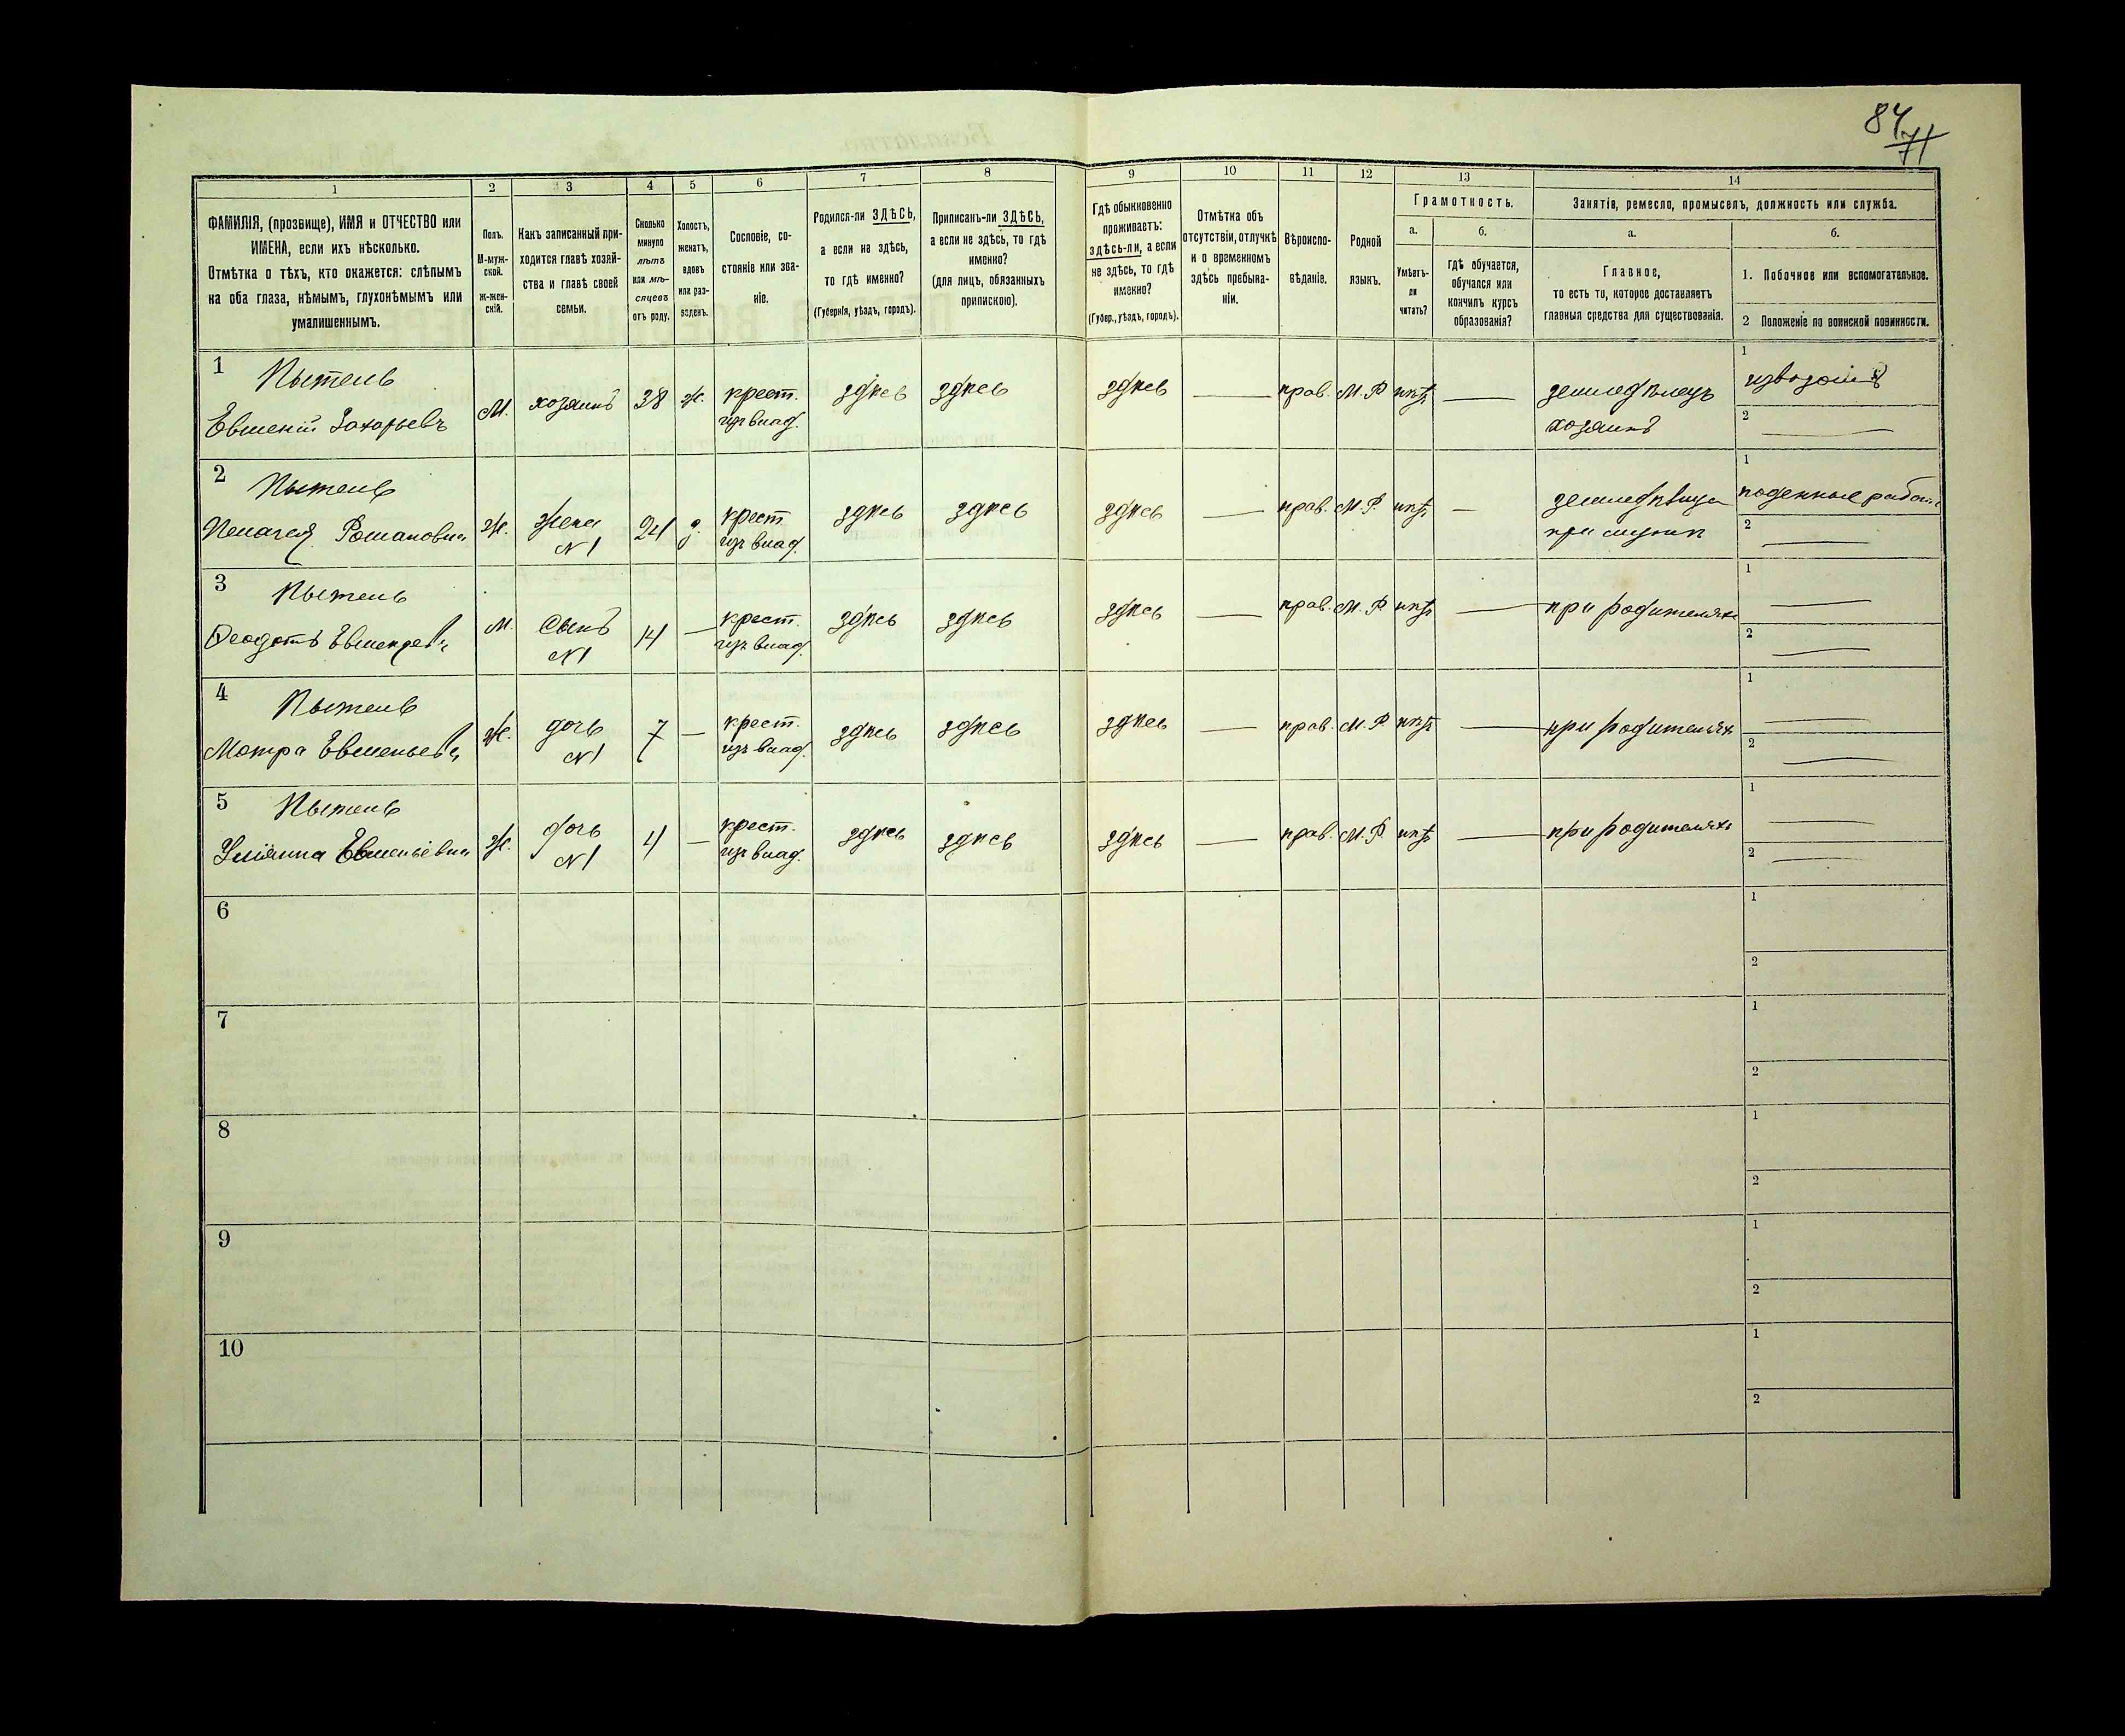 84
71
1
2
3
4
5
6
7
8
9
10
11
12
13
14
ФАМИЛІЯ, (прозвище), ИМЯ и ОТЧЕСТВО или
ИМЕНА, если ихъ нѣсколько.
Отмѣтка о тѣхъ, кто окажется: слѣпымъ
на оба глаза, нѣмымъ, глухонѣмымъ или
умалишеннымъ.
Полъ.
М-муж-
ской.
Ж-жен-
скій.
Какъ записанный при-
ходится главѣ хозяй-
ства и главѣ своей
семьи.
Сколько
минуло
лѣтъ
или мѣ-
сяцевъ
отъ роду.
Холостъ,
женатъ,
вдовъ
или раз-
веденъ.
Сословіе, со-
стояніе или зва-
ніе.
Родился-ли ЗДѢСЬ,
а если не здѣсь,
то гдѣ именно?
(Губернія, уѣздъ, городъ).
Приписанъ-ли ЗДѢСЬ,
а если не здѣсь, то гдѣ
именно?
(для лицъ, обязанныхъ
припискою).
Гдѣ обыкновенно
проживаетъ:
здѣсь-ли, а если
не здѣсь, то гдѣ
именно?
(Губер., уѣздъ, городъ).
Отмѣтка объ
отсутствіи, отлучкѣ
и о временномъ
здѣсь пребыва-
ніи.
Вѣроиспо-
вѣданіе.
Родной
языкъ.
Грамотность.
а.
Умѣетъ-
ли
читать?
б.
гдѣ обучается,
обучался или
кончилъ курсъ
образованія?
Занятія, ремесло, промыселъ, должность или служба.
а.
Главное,
то есть то, которое доставляетъ
главныя средства для существованія.
б.
1. Побочное или вспомогательное.
2 Положеніе по воинской повинности.
1 Пытель
Евменій Захарьевъ
М. хозяинъ 38 ж. крест.
изъ влад.
здѣсь здѣсь здѣсь — прав. М.Р. нѣтъ — земледѣлецъ
хозяинъ
1
2 —
2 Пытель
Пелагея Романовна
Ж. жена
N 1
24 з. крест.
изъ влад.
здѣсь здѣсь здѣсь — прав. М.Р. нѣтъ — земледѣлица
при мужѣ
1 поденные работы
2 —
3 Пытель
Феодотъ
М. сынъ
N 1
14 — крест.
изъ влад.
здѣсь здѣсь здѣсь — прав. М.Р. нѣтъ — при родителяхъ
1 —
2 —
4 Пытель
Мотра
Ж. дочь
N 1
7 — крест.
изъ влад.
здѣсь здѣсь здѣсь — прав. М.Р. нѣтъ — при родителяхъ
1 —
2 —
5 Пытель
Уліянна
Ж. дочь
N 1
4 — крест.
изъ влад.
здѣсь здѣсь здѣсь — прав. М.Р. нѣтъ — при родителяхъ
1 —
2 —
6
1
2
7
1
2
8
1
2
9
1
2
10
1
2